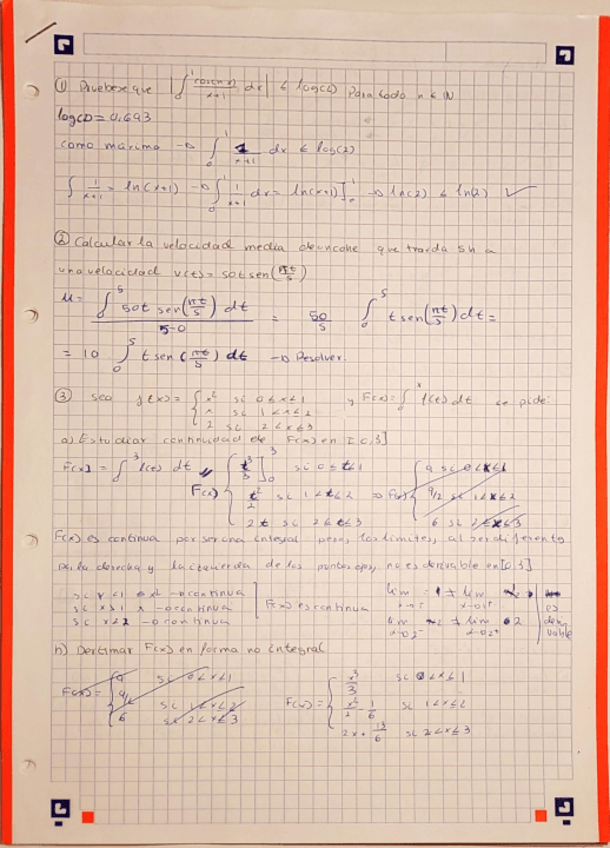 ① Pruebese que |∫₀¹ cos(nx)/(x+1) dx| ≤ log(2) Para todo n ∈ ℕ
log(2) = 0,693
como maximo → ∫₀¹ 1/(x+1) dx ≤ log(2)
∫ 1/(x+1) = ln(x+1) → ∫₀¹ 1/(x+1) dx = ln(x+1)]₀¹ → ln(2) ≤ ln(2) ✓
② Calcular la velocidad media de un coche que tarda 5h a
una velocidad v(t) = 50t sen(πt/5)
μ = ∫₀⁵ 50t sen(πt/5) dt / 5-0 = 50/5 ∫₀⁵ t sen(πt/5) dt =
= 10 ∫₀⁵ t sen(πt/5) dt → Resolver.
③ sea f(x) = { x² si 0≤x≤1 y F(x) = ∫₀ˣ f(t) dt se pide:
x si 1<x≤2
2 si 2<x≤3
a) Estudiar continuidad de F(x) en [0,3]
F(x) = ∫₀³ f(t) dt F(x) { t³/3 ]₀³ si 0≤t≤1 ⇒ F(x) { 9 si 0<x≤1
t²/2 si 1<t≤2 9/2 si 1<x≤2
2t si 2≤t≤3 6 si 2<x≤3
F(x) es continua por ser una integral pero, los limites, al ser diferente
por la derecha y la izquierda de los puntos no es derivable en [0,3]
si x<1 x² → continua lim = 1 ≠ lim
si x>1 x → continua F(x) es continua es
si x>2 → continua lim ≠ lim 2 derivable
b) F(x) en forma no integral
F(x) = { 9 si 0<x<1 F(x) = { x³/3 si 0<x≤1
9/2 si 1<x<2 x²/2 - 1/6 si 1<x≤2
6 si 2<x≤3 2x - 13/6 si 2<x≤3